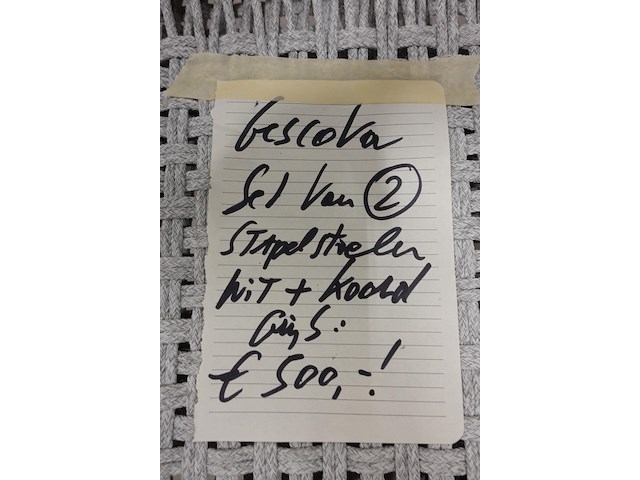 Gescova
Set van 2
STApel stoelen
wit + koord
Grijs:
€ 500,-!